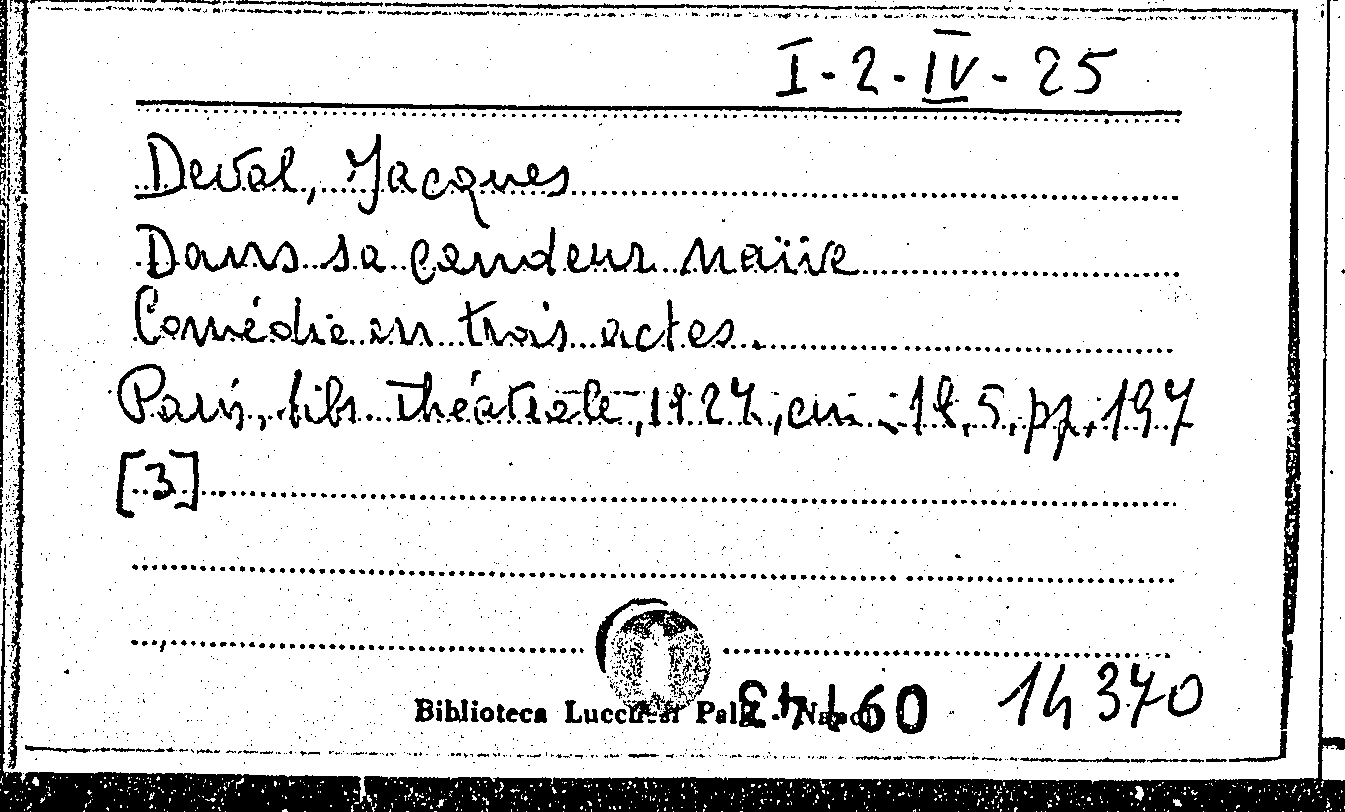 I-2-IV-25
Deval, Jacques
Dans sa candeur naïve
Comédie en trois actes.
Paris, libr. théâtrale, 1927, cm. 18,5, pp. 197
[3]
Biblioteca Lucchesi Palli - Napoli
14370